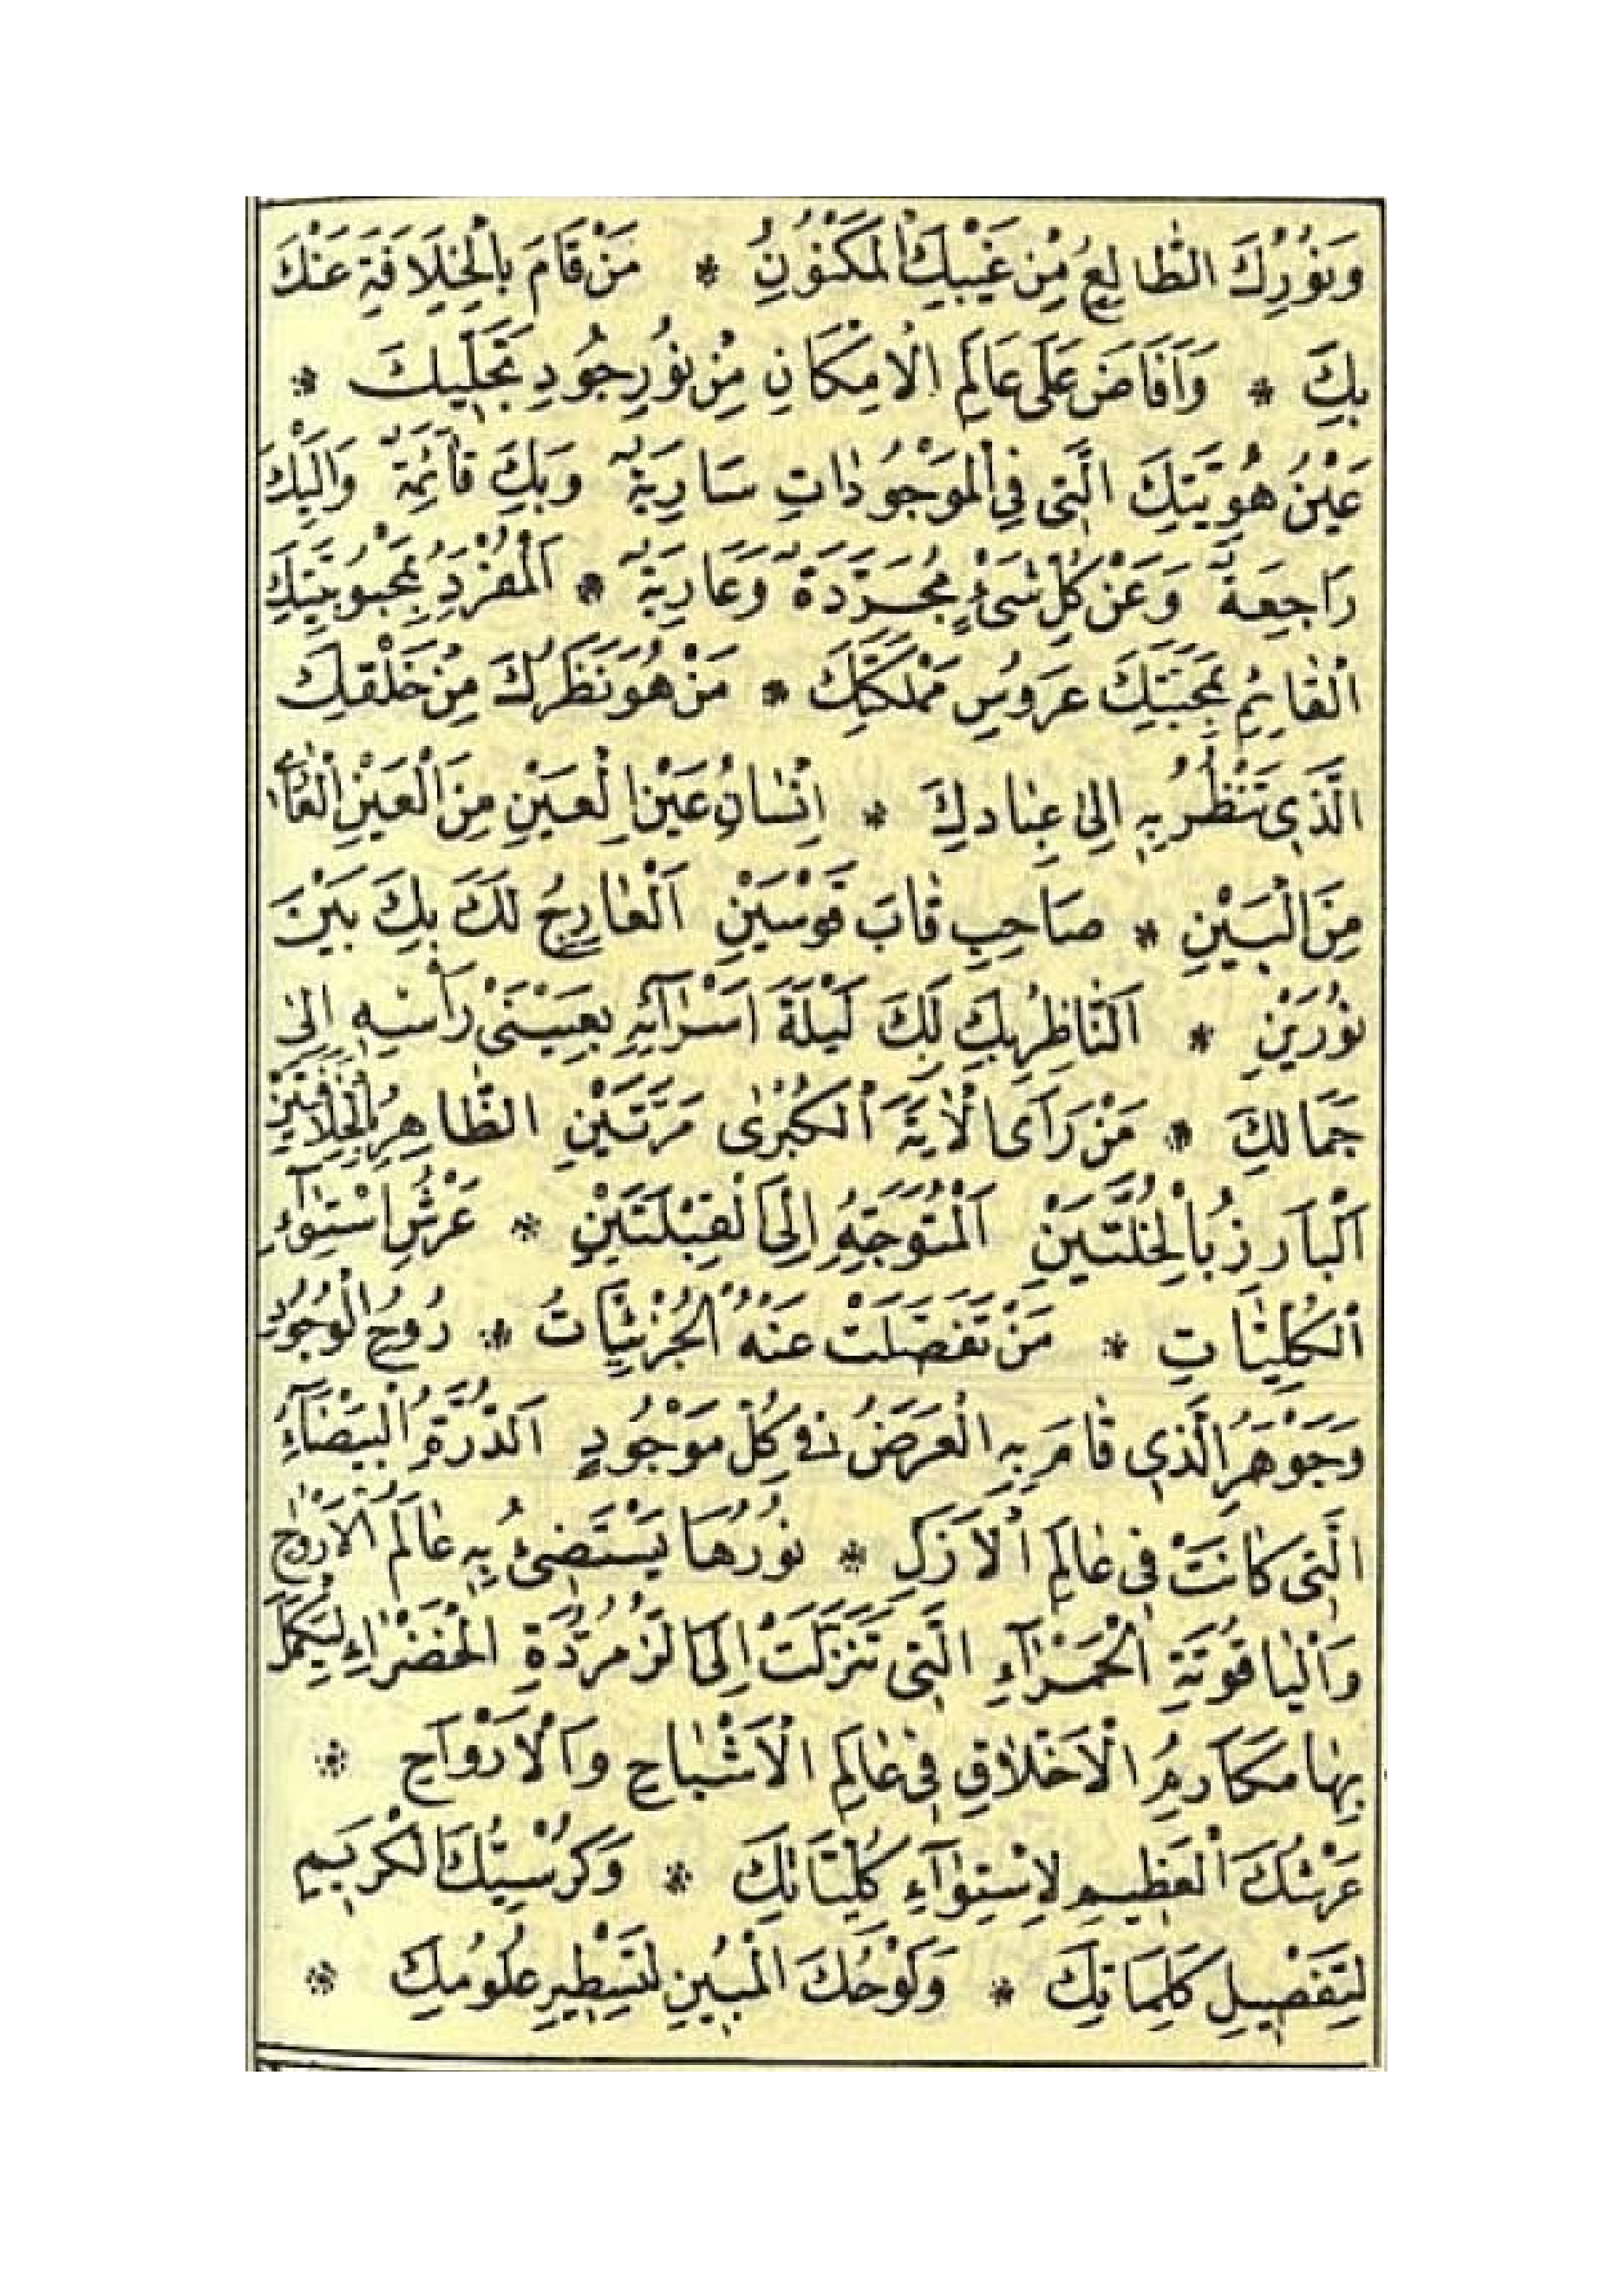 وَنُوْرُكَ الطَّالِعُ مِنْ غَيْبِكَ الْمَكْنُوْنِ * مَنْ قَامَ بِالْخِلَافَةِ عَنْكَ
بِكَ * وَاَفَاضَ عَلَى عَالَمِ الْاِمْكَانِ مِنْ نُورِ جُودِ تَجَلِّيكَ *
عَيْنُ هُوِيَّتِكَ الَّتِى فِى الْمَوْجُودَاتِ سَارِيَةٌ وَبِكَ قَائِمَةٌ وَاِلَيْكَ
رَاجِعَةٌ وَعَنْ كُلِّ شَىْءٍ مُجَرَّدَةٌ وَعَارِيَةٌ * اَلْمُفْرَدِ بِمَحْبُوبِيَّتِكَ
الْقَائِمُ بِمَحَبَّتِكَ عَرُوسِ مَمْلَكَتِكَ * مَنْ هُوَ نَظَرُكَ مِنْ خَلْقِكَ
الَّذِى تَنْظُرُ بِهِ اِلٰى عِبَادِكَ * اِنْسَانُ عَيْنِ الْعَيْنِ مِنَ الْعَيْنِ الْفَانِى
مِنَ الْبَيْنِ * صَاحِبِ قَابَ قَوْسَيْنِ اَلْعَارِجُ لَكَ بِكَ بَيْنَ
نُورَيْنِ * اَلنَّاظِرُ بِكَ لَكَ لَيْلَةَ اَسْرَآئِهِ بِعَيْنَىْ رَأْسِهِ اِلٰى
جَمَالِكَ * مَنْ رَاَى الْاٰيَةَ الْكُبْرٰى مَرَّتَيْنِ الظَّاهِرُ بِالْخِلَافَتَيْنِ
اَلْبَارِزُ بِالْخُلَّتَيْنِ اَلْمُتَوَجِّهُ اِلَى الْقِبْلَتَيْنِ * عَرْشِ اسْتِوَآءِ
الْكُلِّيَّاتِ * مَنْ تَفَصَّلَتْ عَنْهُ الْجُزْئِيَّاتُ * رُوحُ الْوُجُودِ
وَجَوْهَرِ الَّذِى قَامَ بِهِ الْعَرَضُ فِى كُلِّ مَوْجُودٍ اَلدُّرَّةُ الْبَيْضَآءُ
الَّتِى كَانَتْ فِى عَالَمِ الْاَزَلِ * نُورُهَا يَسْتَضِىءُ بِهِ عَالَمُ الْاَرْوَاحِ
وَالْيَاقُوتَةِ الْحَمْرَآءِ الَّتِى تَنَزَّلَتْ اِلَى الزُّمُرُّدَةِ الْخَضْرَاءِ لِيَكْمُلَ
بِهَا مَكَارِمُ الْاَخْلَاقِ فِى عَالَمِ الْاَشْبَاحِ وَالْاَرْوَاحِ *
عَرْشُكَ الْعَظِيمِ لِاسْتِوَآءِ كُلِّيَّاتِكَ * وَكُرْسِيُّكَ الْكَرِيمِ
لِتَفْصِيلِ كَلِمَاتِكَ * وَلَوْحُكَ الْمُبِينِ لِتَسْطِيرِ عُلُومِكَ *